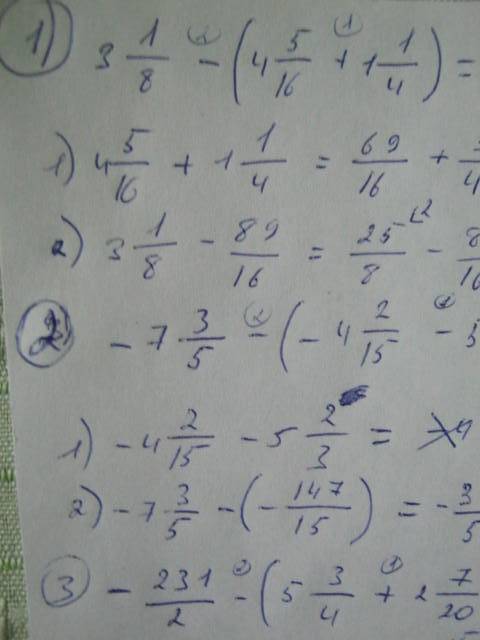 1) 3 1/8 - (4 5/16 + 1 1/4) =
1) 4 5/16 + 1 1/4 = 69/16 +
2) 3 1/8 - 89/16 = 25/8 -
2) - 7 3/5 - (- 4 2/15 -
1) - 4 2/15 - 5 2/3 =
2) - 7 3/5 - (- 147/15) = -
3 - 231/2 - (5 3/4 + 2 7/20